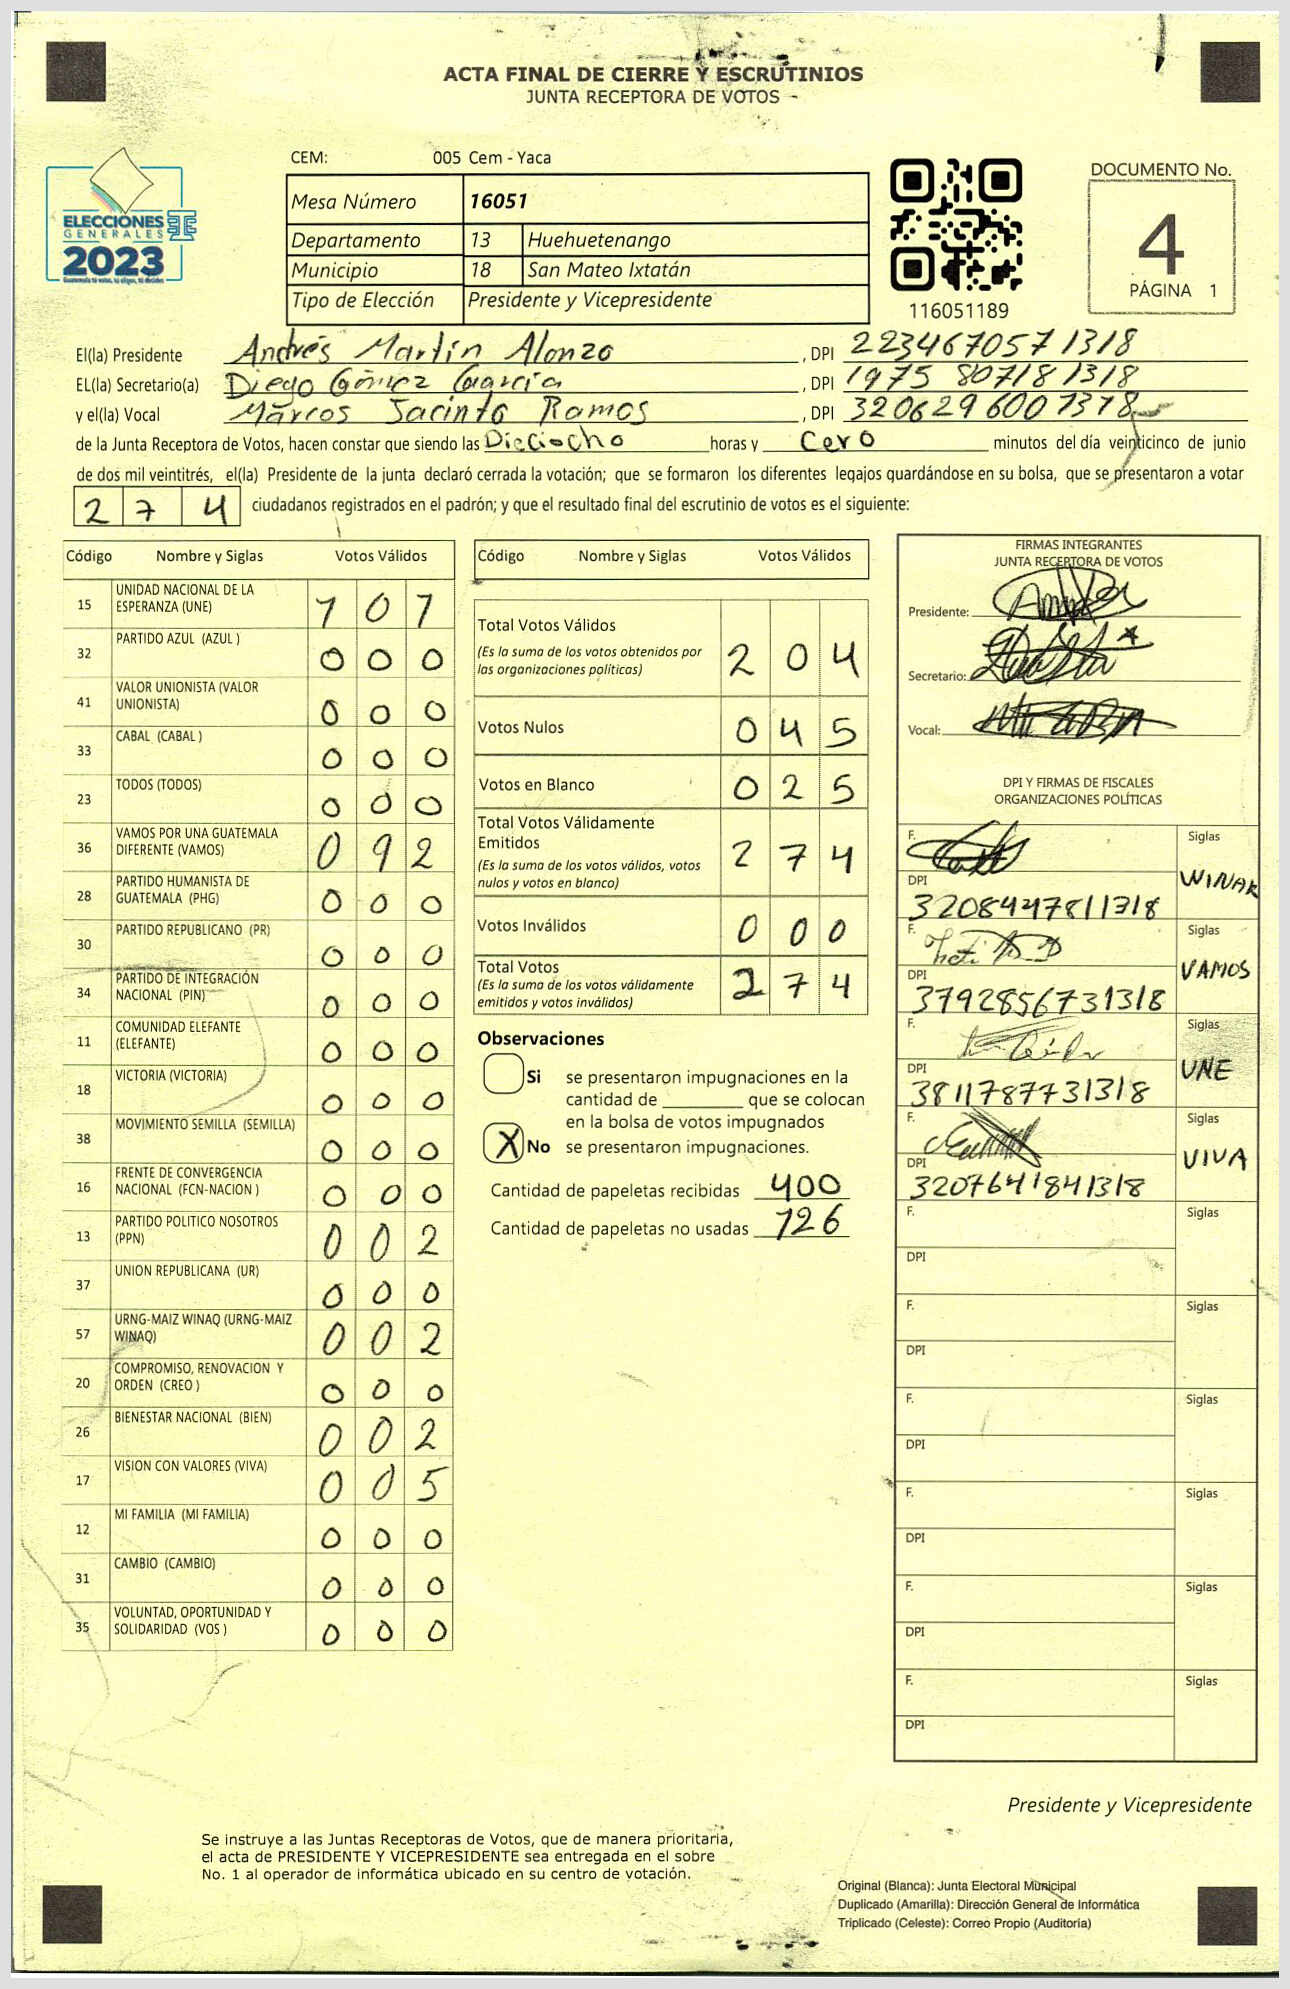 ACTA FINAL DE CIERRE Y ESCRUTINIOS
JUNTA RECEPTORA DE VOTOS
ELECCIONES
GENERALES
2023
CEM: 005 Cem - Yaca
Mesa Número 16051
Departamento 13 Huehuetenango
Municipio 18 San Mateo Ixtatán
Tipo de Elección Presidente y Vicepresidente
116051189
DOCUMENTO No.
4
PÁGINA 1
El(la) Presidente Andrés Martín Alonzo, DPI 2234670571318
EL(la) Secretario(a) Diego Gómez García, DPI 1975 807181318
y el(la) Vocal Marcos Jacinto Ramos, DPI 3206296001318
de la Junta Receptora de Votos, hacen constar que siendo las Dieciocho horas y Cero minutos del día veinticinco de junio
de dos mil veintitrés, el(la) Presidente de la junta declaró cerrada la votación; que se formaron los diferentes legajos guardándose en su bolsa, que se presentaron a votar
274 ciudadanos registrados en el padrón; y que el resultado final del escrutinio de votos es el siguiente:
Código Nombre y Siglas Votos Válidos
15 UNIDAD NACIONAL DE LA
ESPERANZA (UNE) 101
32 PARTIDO AZUL (AZUL ) 000
41 VALOR UNIONISTA (VALOR
UNIONISTA) 000
33 CABAL (CABAL ) 000
23 TODOS (TODOS) 000
36 VAMOS POR UNA GUATEMALA
DIFERENTE (VAMOS) 092
28 PARTIDO HUMANISTA DE
GUATEMALA (PHG) 000
30 PARTIDO REPUBLICANO (PR) 000
34 PARTIDO DE INTEGRACIÓN
NACIONAL (PIN) 000
11 COMUNIDAD ELEFANTE
(ELEFANTE) 000
18 VICTORIA (VICTORIA) 000
38 MOVIMIENTO SEMILLA (SEMILLA) 000
16 FRENTE DE CONVERGENCIA
NACIONAL (FCN-NACION ) 000
13 PARTIDO POLITICO NOSOTROS
(PPN) 002
37 UNION REPUBLICANA (UR) 000
57 URNG-MAIZ WINAQ (URNG-MAIZ
WINAQ) 002
20 COMPROMISO, RENOVACION Y
ORDEN (CREO ) 000
26 BIENESTAR NACIONAL (BIEN) 002
17 VISION CON VALORES (VIVA) 005
12 MI FAMILIA (MI FAMILIA) 000
31 CAMBIO (CAMBIO) 000
35 VOLUNTAD, OPORTUNIDAD Y
SOLIDARIDAD (VOS ) 000
Código Nombre y Siglas Votos Válidos
Total Votos Válidos
(Es la suma de los votos obtenidos por
las organizaciones políticas) 204
Votos Nulos 045
Votos en Blanco 025
Total Votos Válidamente
Emitidos
(Es la suma de los votos válidos, votos
nulos y votos en blanco) 274
Votos Inválidos 000
Total Votos
(Es la suma de los votos válidamente
emitidos y votos inválidos) 274
Observaciones
Si se presentaron impugnaciones en la
cantidad de ________ que se colocan
en la bolsa de votos impugnados
X No se presentaron impugnaciones.
Cantidad de papeletas recibidas 400
Cantidad de papeletas no usadas 126
FIRMAS INTEGRANTES
JUNTA RECEPTORA DE VOTOS
Presidente:
Secretario:
Vocal:
DPI Y FIRMAS DE FISCALES
ORGANIZACIONES POLÍTICAS
F. Siglas
WINAK
DPI
3208447811318
F. Siglas
VAMOS
DPI
3792856731318
F. Siglas
UNE
DPI
3811787731318
F. Siglas
VIVA
DPI
3207641841318
F. Siglas
DPI
F. Siglas
DPI
F. Siglas
DPI
F. Siglas
DPI
F. Siglas
DPI
F. Siglas
DPI
Presidente y Vicepresidente
Se instruye a las Juntas Receptoras de Votos, que de manera prioritaria,
el acta de PRESIDENTE Y VICEPRESIDENTE sea entregada en el sobre
No. 1 al operador de informática ubicado en su centro de votación.
Original (Blanca): Junta Electoral Municipal
Duplicado (Amarilla): Dirección General de Informática
Triplicado (Celeste): Correo Propio (Auditoría)